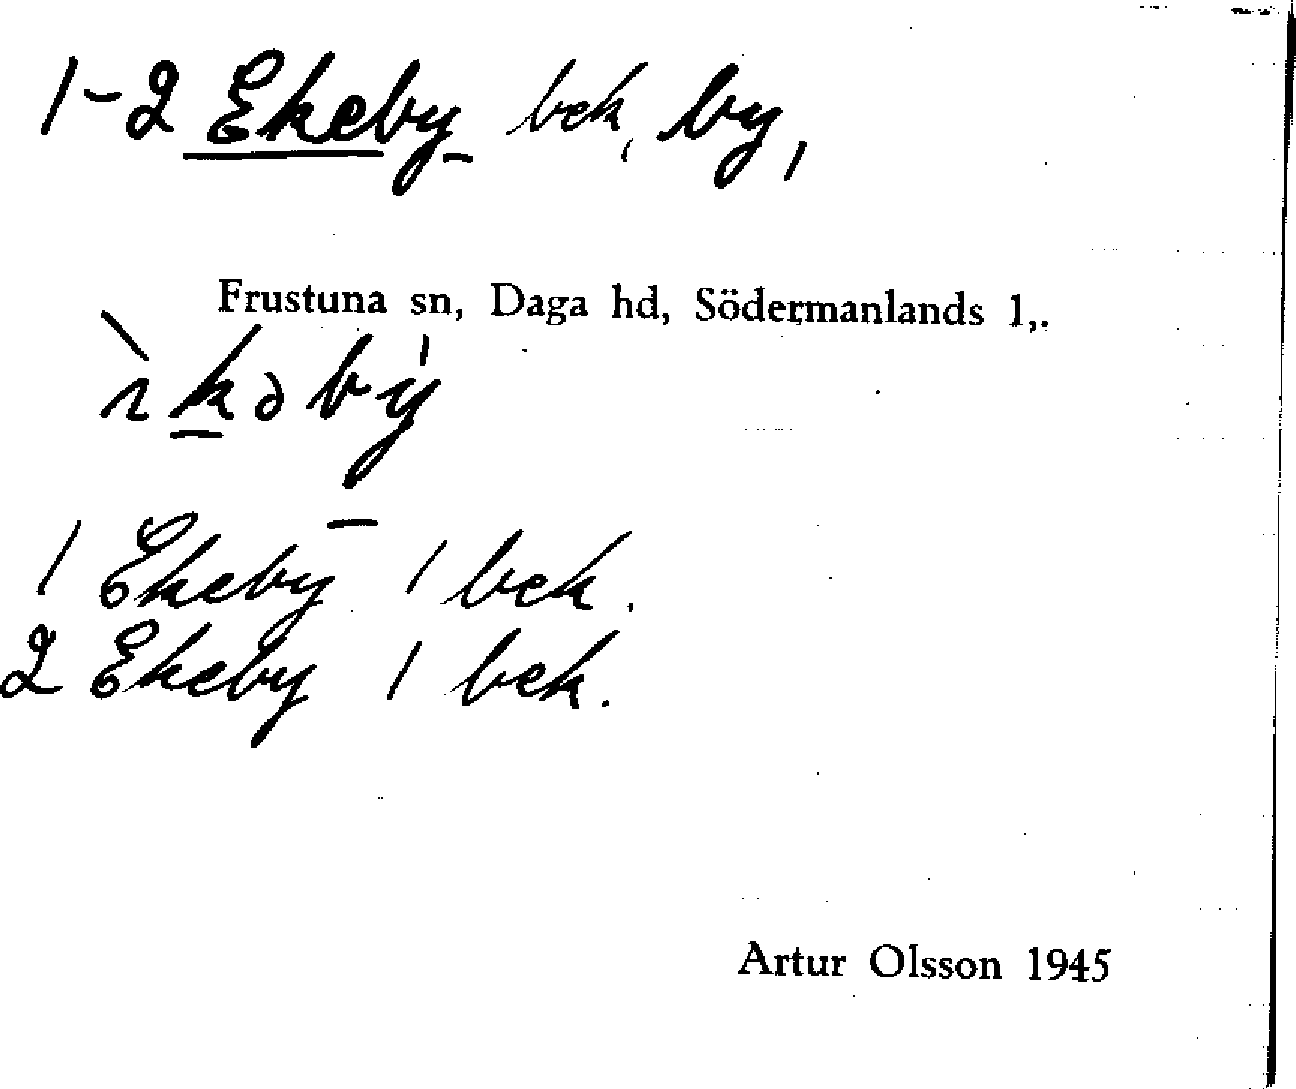 1-2 Ekeby bek, by,
Frustuna sn, Daga hd, Södermanlands l,.
1 Ekeby 1 bek.
2 Ekeby 1 bek.
Artur Olsson 1945